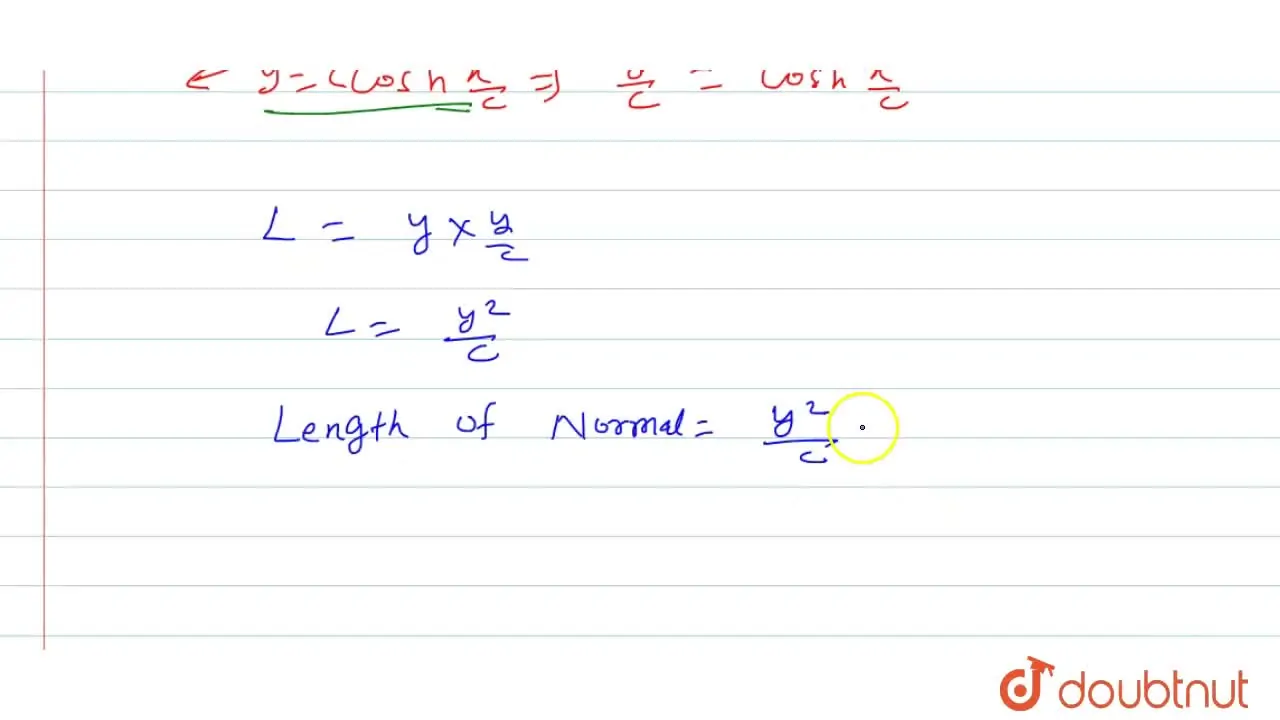 y = c cos h x/c ⇒ y/c = cos h x/c
L = y × y/c
L = y²/c
Length of Normal = y²/c
doubtnut